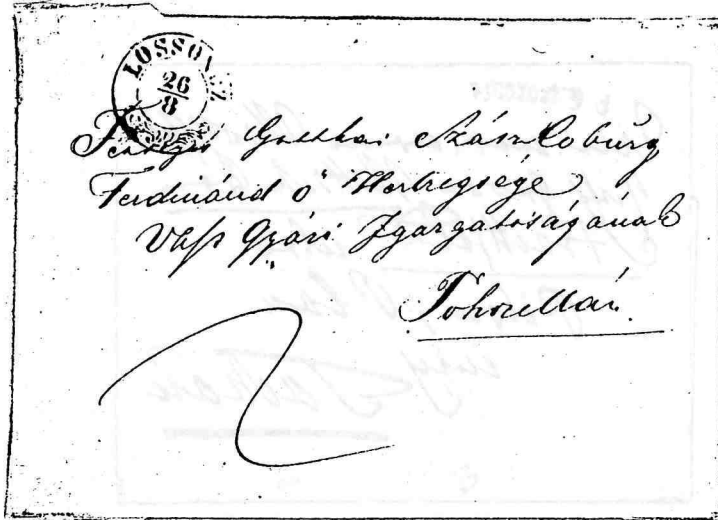 LOSSONCZ
26
8
Fenséges Gotthai Szász Coburg
Ferdinánd ő Hertzegsége
Vass Gyári Igazgatóságának
Pohorellán